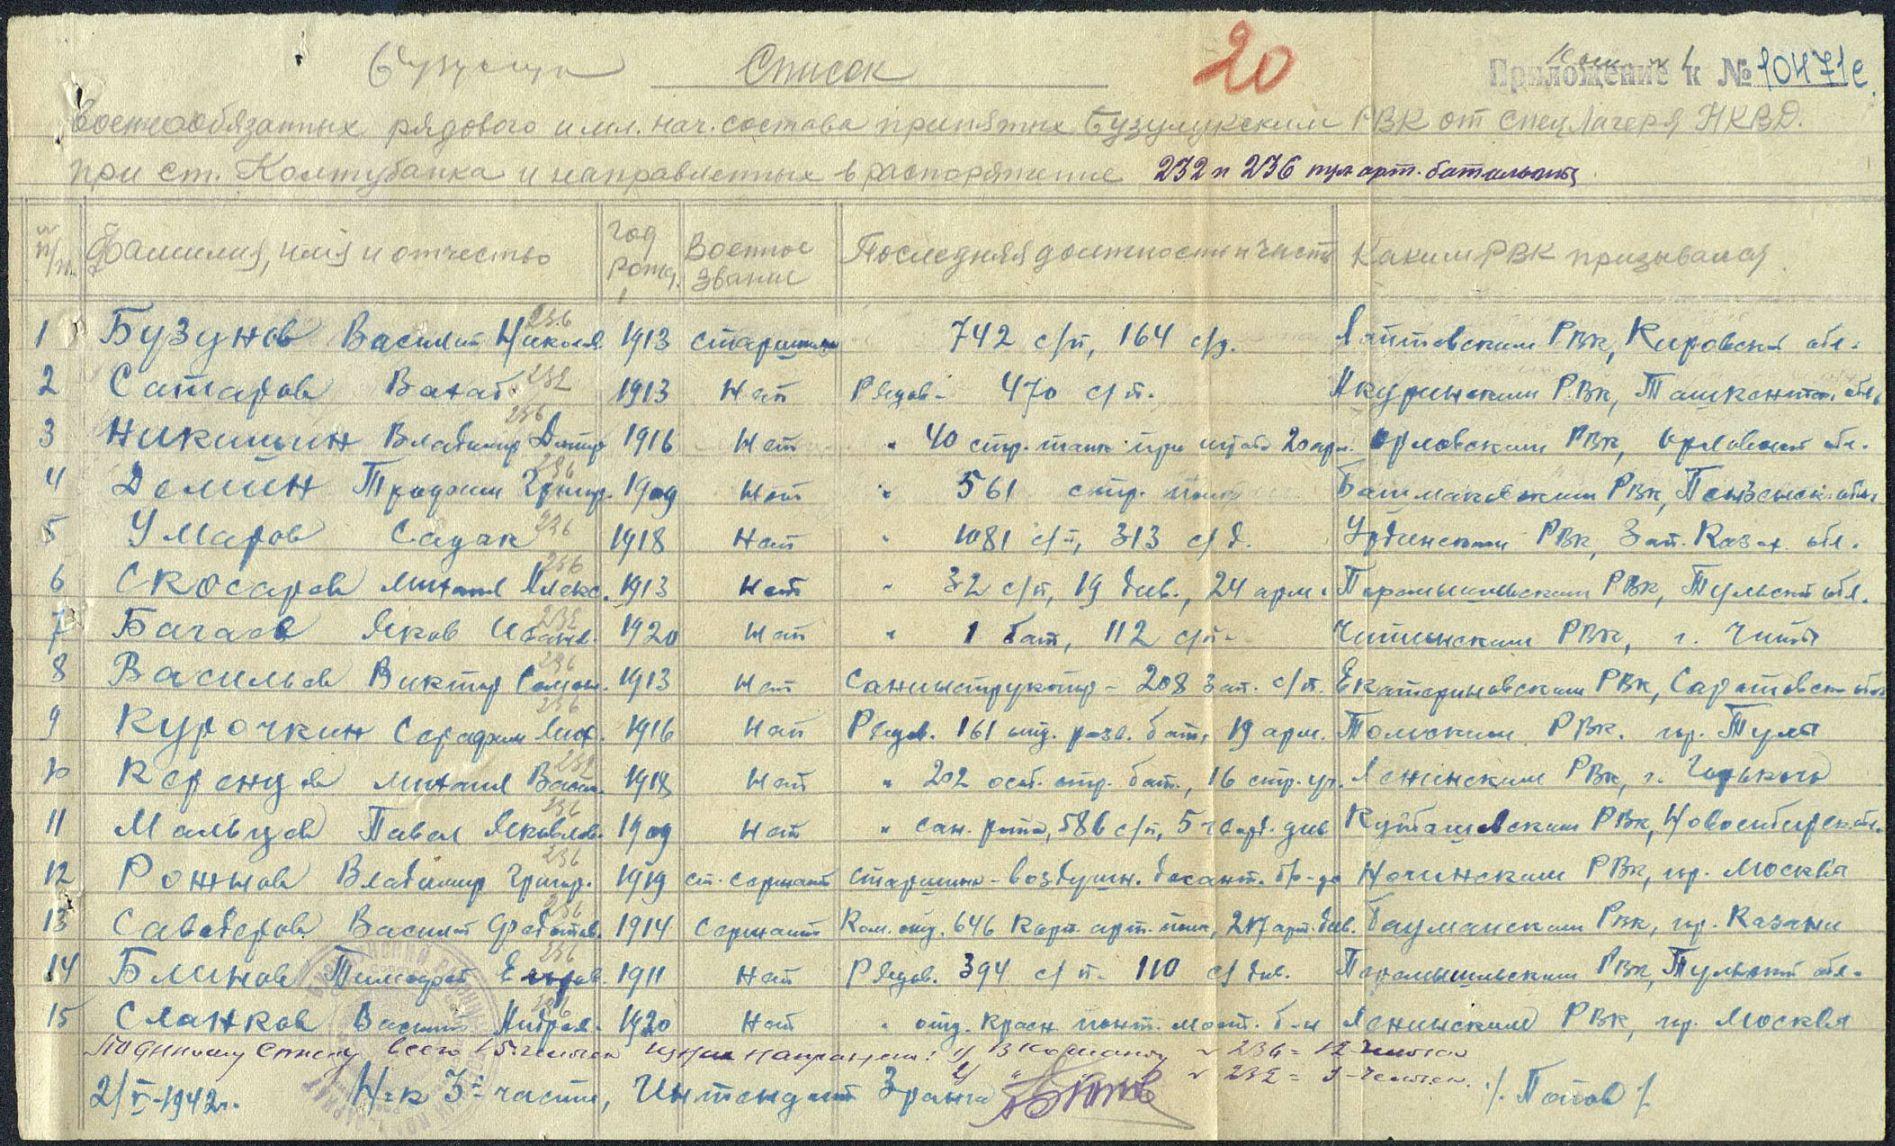 Список
20
Приложение к № 10471с
военнообязанных рядового и мл. нач. состава принятых Бузулукским РВК от спецлагеря НКВД.
при ст. Колтубанка и направленных в распоряжение 232 и 236 пул. арт. батальоны
№ п/п. Фамилия, имя и отчество Год рожд. Военное звание Последняя должность и часть Каким РВК призывался
1 Бузунов Василий Никол. 236 1913 старшина 742 с/п, 164 с/д. РВК, Кировской обл.
2 Сатаров Вахаб 232 1913 Нет Рядов. 470 с/п. РВК, Ташкентск. обл.
3 Никишин Владимир Дмитр. 236 1916 Нет " 40 стр. танк. при штабе 20 арм. Орловским РВК, Орловской обл.
4 Демин Трофим Григор. 236 1909 Нет " 561 стр. полк Башмаковским РВК, Пензенск. обл.
5 Умаров Садак 236 1918 Нет " 1081 с/п, 313 с/д. Урдинским РВК, Зап. Казах. обл.
6 Скосарев Михаил Алекс. 236 1913 Нет " 32 с/п, 19 див., 24 арм. Перемышльским РВК, Тульской обл.
7 Бачаев Яков Иванв. 232 1920 Нет " 1 бат, 112 с/п. Читинским РВК, г. Чита
8 Васильев Виктор Семен. 236 1913 Нет Санинструктор - 208 зап. с/п. Екатериновским РВК, Саратовск. обл.
9 Курочкин Серафим Мих. 236 1916 Нет Рядов. 161 отд. разв. бат, 19 арм. РВК. гор. Тула
10 Михаил Васил. 232 1918 Нет " 202 особ. стр. бат., 16 стр. уч. Ленинским РВК, г. Горький
11 Мальцев Павел Яковлев. 236 1909 Нет " сан. рота, 586 с/п, 5 гвард. див Куйбышевским РВК, Новосибирск. обл.
12 Рожнов Владимир Григор. 236 1919 ст. сержант старшина - воздушн. десант. бр-да РВК, гор. Москва
13 Василий Федотов. 236 1914 Сержант Ком. отд. 646 корп. арт. полк, 217 арт. див. Бауманским РВК, гор. Казани
14 Блинов Тимофей Егоров. 236 1911 Нет Рядов. 394 с/п. 110 с/див. Перемышльским РВК, Тульской обл.
15 Сланков Василий Андрея. 236 1920 Нет " отд. красн. понт. мост. б-н Ленинским РВК, гор. Москва
По данному списку всего 15 человек из них направлено: 1) в команду № 236 = 12 человек
2) " № 232 = 3 человек.
2/V-1942г. Н-к 3й части, Интендант 3 ранга /Попов/